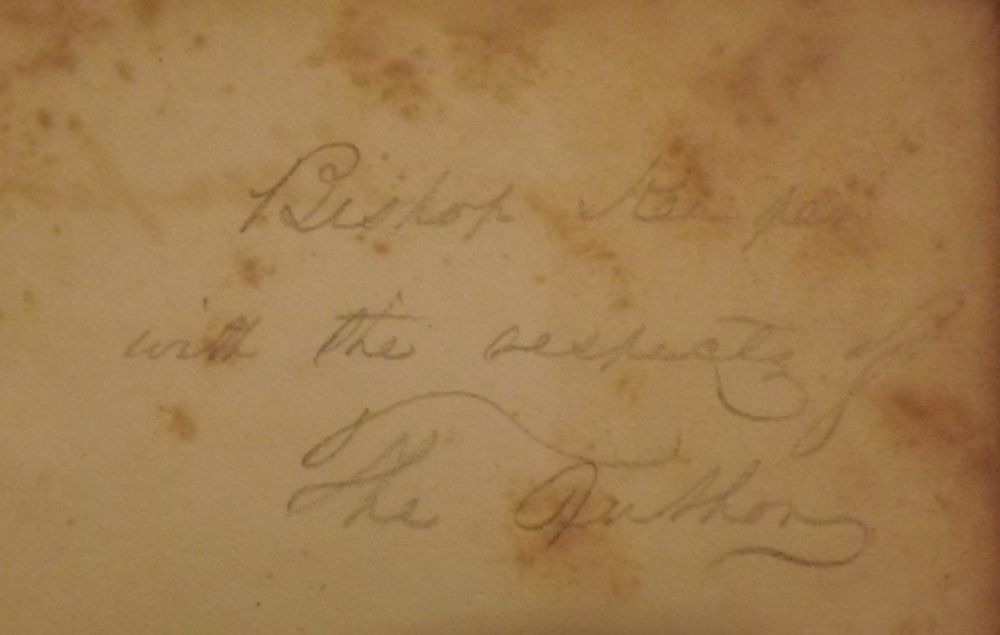 Bishop Kemper
with the respects of
The Author